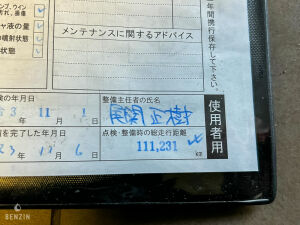 ンプ、ウイン
汚れ、損傷
ャ液の量
の噴射状態
状態
メンテナンスに関するアドバイス
年間携行保存して下さい。
検の年月日
3 11 1
整備主任者の氏名
正樹
を完了した年月日
点検・整備時の総走行距離
23 11 6
111,231
km
使用者用
BENZIN